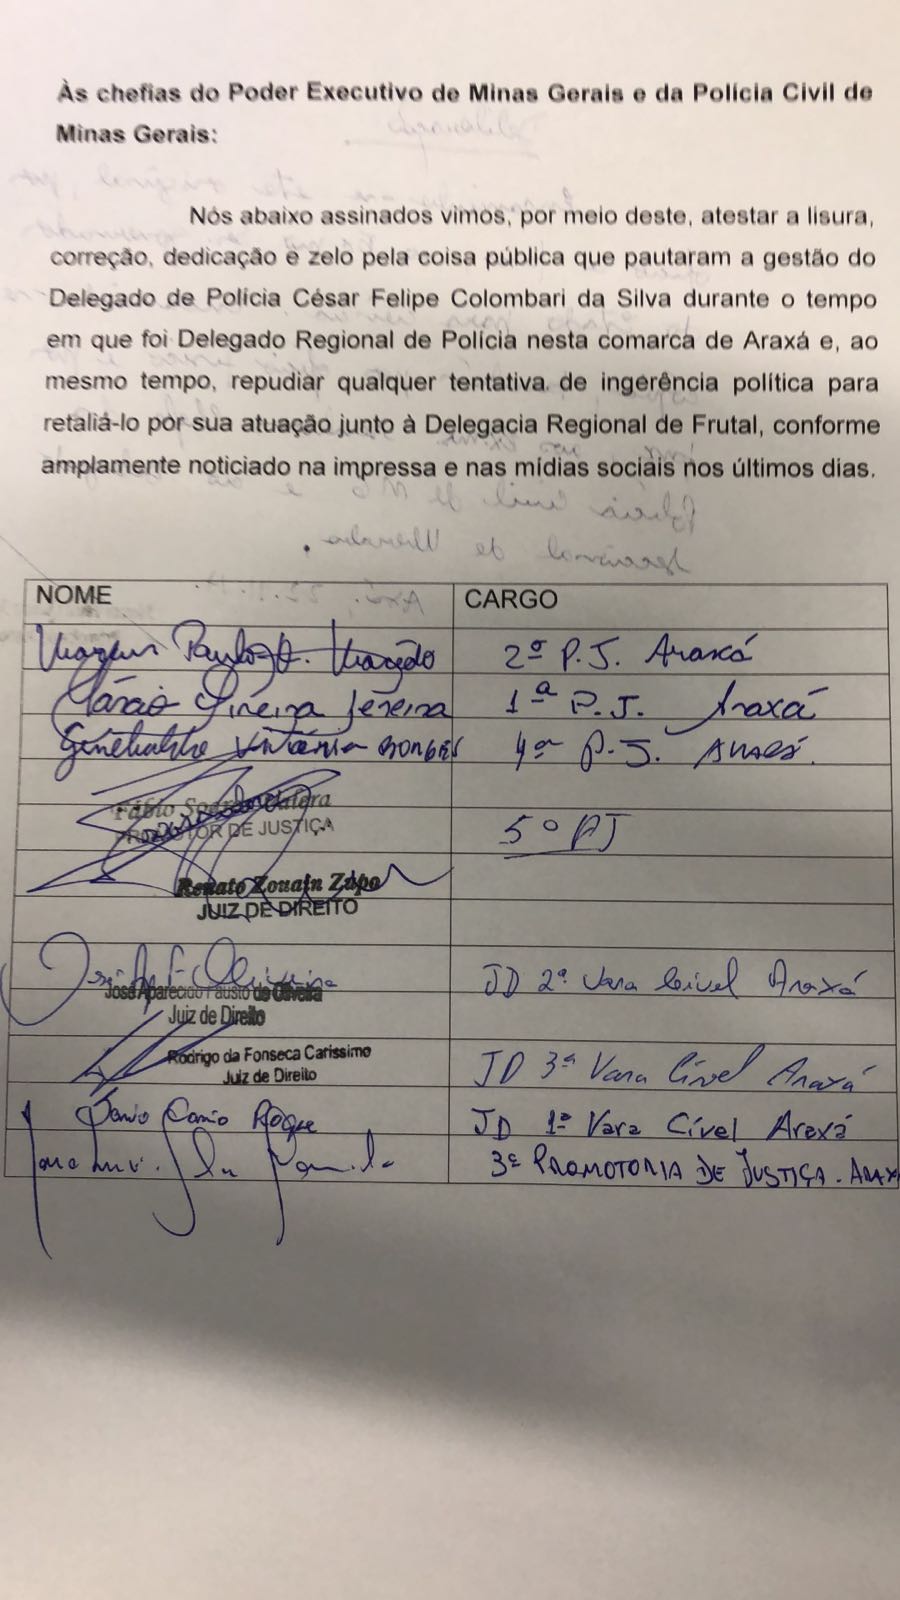 Às chefias do Poder Executivo de Minas Gerais e da Polícia Civil de
Minas Gerais:
Nós abaixo assinados vimos, por meio deste, atestar a lisura,
correção, dedicação e zelo pela coisa pública que pautaram a gestão do
Delegado de Polícia César Felipe Colombari da Silva durante o tempo
em que foi Delegado Regional de Polícia nesta comarca de Araxá e, ao
mesmo tempo, repudiar qualquer tentativa de ingerência política para
retaliá-lo por sua atuação junto à Delegacia Regional de Frutal, conforme
amplamente noticiado na impressa e nas mídias sociais nos últimos dias.
NOME CARGO
2º P.J. Araxá
1ª P.J. Araxá
4ª P.J. Araxá.
Fábio Soares Valera
PROMOTOR DE JUSTIÇA 5º PJ
Renato Zouain Zupo
JUIZ DE DIREITO
JD 2ª Vara Cível Araxá
José Aparecido Fausto de Oliveira
Juiz de Direito
Rodrigo da Fonseca Caríssimo JD 3ª Vara Cível Araxá
Juiz de Direito
Roque JD 1ª Vara Cível Araxá
3ª PROMOTORIA DE JUSTIÇA - ARAX